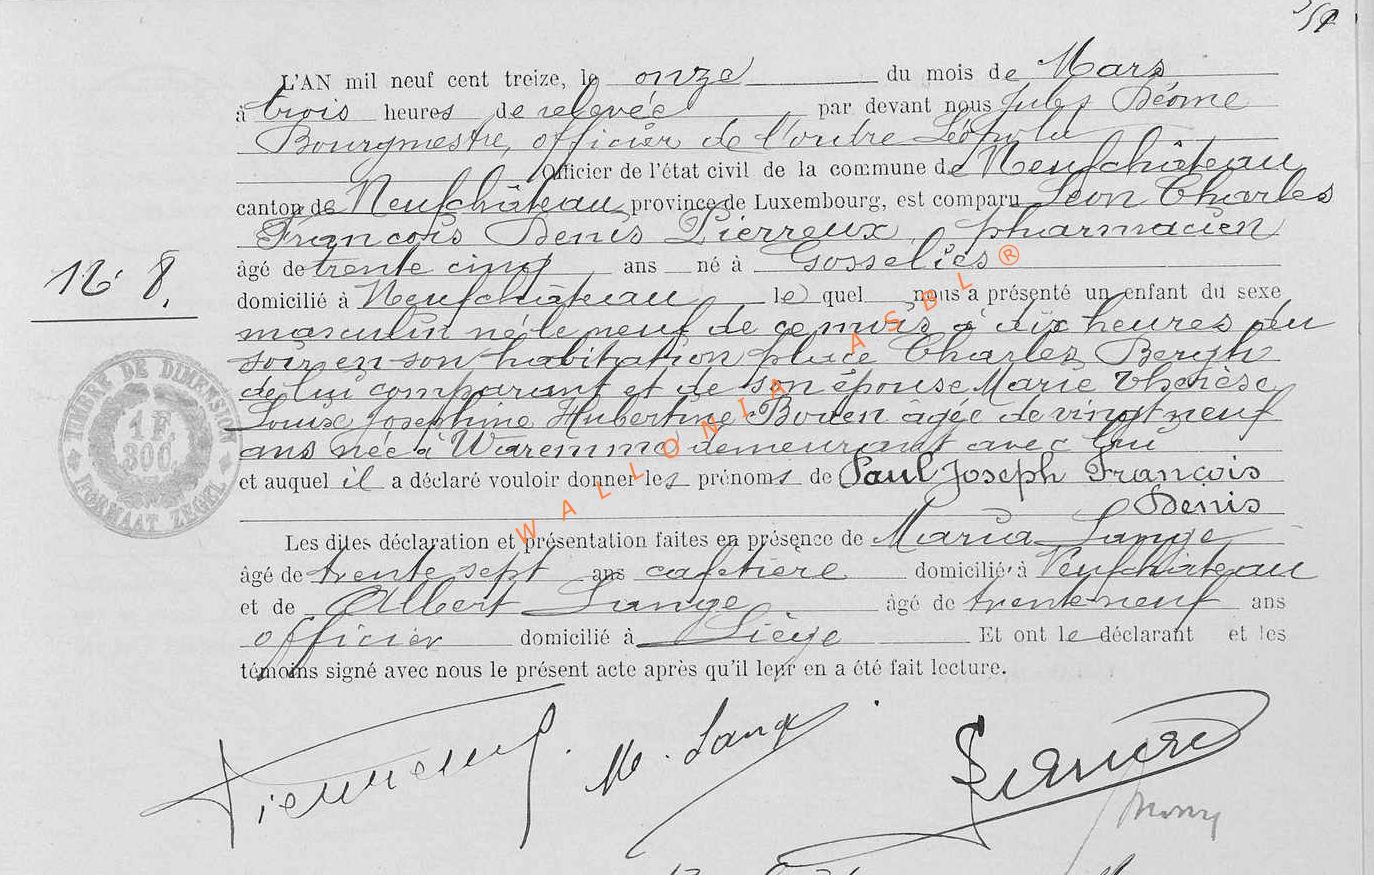 L'AN mil neuf cent treize, le onze du mois de Mars
à trois heures de relevée par devant nous Jules
Bourgmestre, officier de l'ordre Léopold
Officier de l'état civil de la commune de Neufchâteau
canton de Neufchâteau province de Luxembourg, est comparu Léon Charles
François Denis Pierreux, pharmacien
âgé de trente cinq ans né à Gosselies
N° 8.
domicilié à Neufchâteau le quel nous a présenté un enfant du sexe
masculin né le neuf de ce mois à dix heures du
soir en son habitation place Charles Bergh
de lui comparant et de son épouse Marie Thérèse
Louise Joséphine Hubertine Boven âgée de vingt neuf
ans née à Waremme demeurant avec lui
et auquel il a déclaré vouloir donner les prénoms de Paul Joseph François
Denis
Les dites déclaration et présentation faites en présence de Maria Lange
âgé de trente sept ans cafetière domicilié à Neufchâteau
et de Albert Lange âgé de trente neuf ans
officier domicilié à Liège Et ont le déclarant et les
témoins signé avec nous le présent acte après qu'il leur en a été fait lecture.
TIMBRE DE DIMENSION
1 F.
300.
FORMAAT ZEGEL
WALLONIA ASBL ®
Pierreux
M. Lange